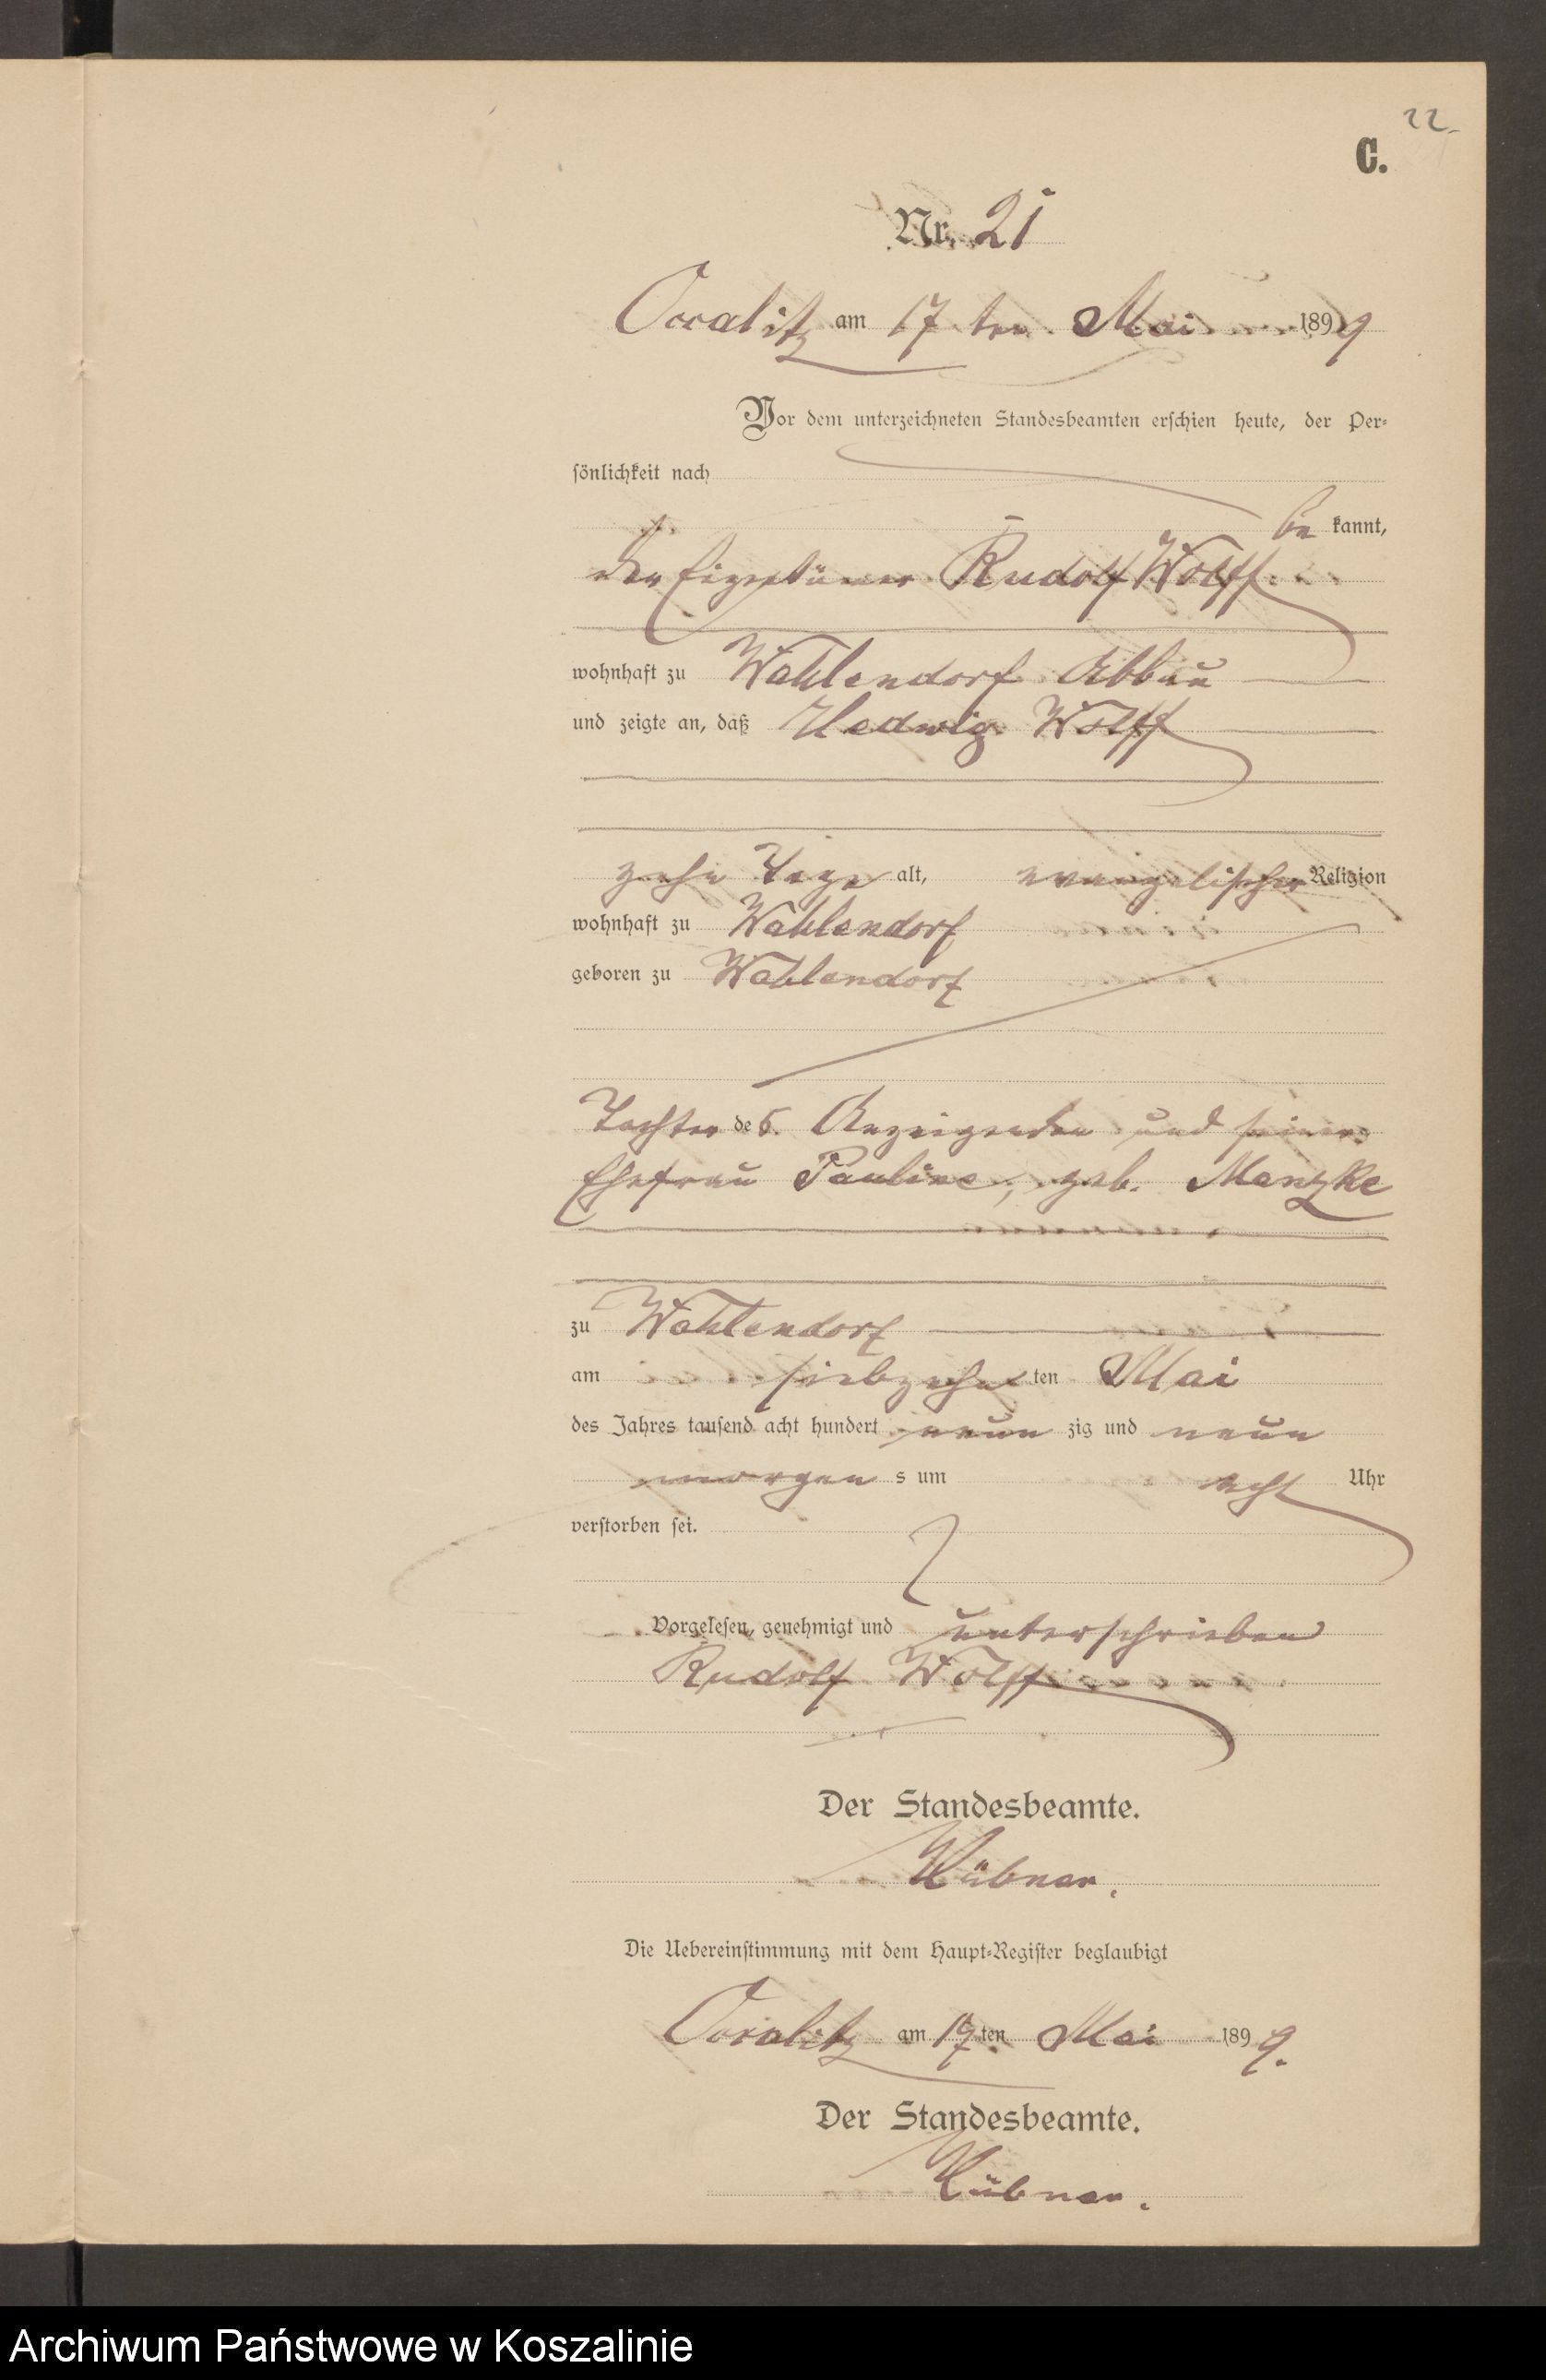 22.
C.
Nr. 21
Occalitz am 17 ten Mai 1899
Vor dem unterzeichneten Standesbeamten erschien heute, der Per-
sönlichkeit nach
be kannt,
der Eigentümer Rudolf Wolff
wohnhaft zu Wahlendorf Abbau
und zeigte an, daß Hedwig Wolff
zehn Tage alt, evangelischer Religion
wohnhaft zu Wahlendorf
geboren zu Wahlendorf
Tochter des Anzeigenden und seiner
Ehefrau Pauline, geb. Manzke
zu Wahlendorf
am siebzehn ten Mai
des Jahres tausend acht hundert neun zig und neun
morgen s um acht Uhr
verstorben sei.
Vorgelesen, genehmigt und unterschrieben
Rudolf Wolff
Der Standesbeamte.
Hübner.
Die Uebereinstimmung mit dem Haupt-Register beglaubigt
Occalitz am 17 ten Mai 1899.
Der Standesbeamte.
Hübner.
Archiwum Państwowe w Koszalinie